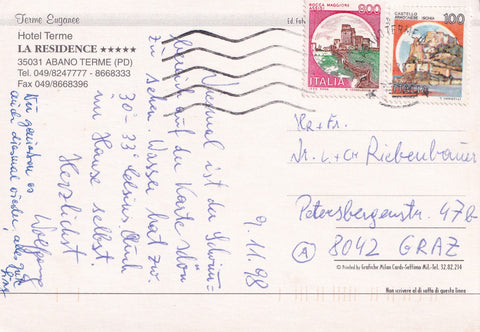 Terme Euganee
Hotel Terme
LA RESIDENCE ★★★★★
35031 ABANO TERME (PD)
Tel. 049/8247777 - 8668333
Fax 049/8668396
ROCCA MAGGIORE
ASSISI
800
ITALIA
CASTELLO
ARAGONESE ISCHIA
100
9.11.98
Diesmal ist der Schwimm=
bereich auf der Karte schön
zu sehen. Wasser hat zw.
30-33° Celsius Auch
im Hause selbst.
Herzlichst
Wolfgang
Wir genießen es
auch diesmal wieder, alles
Hr + Fr.
Dr. L + CH Riebenbauer
Petersbergenstr. 47b
A 8042 GRAZ
© Printed by Grafiche Milan Cards-Settimo Mil.-Tel. 32.82.214
Non scrivere al di sotto di questa linea